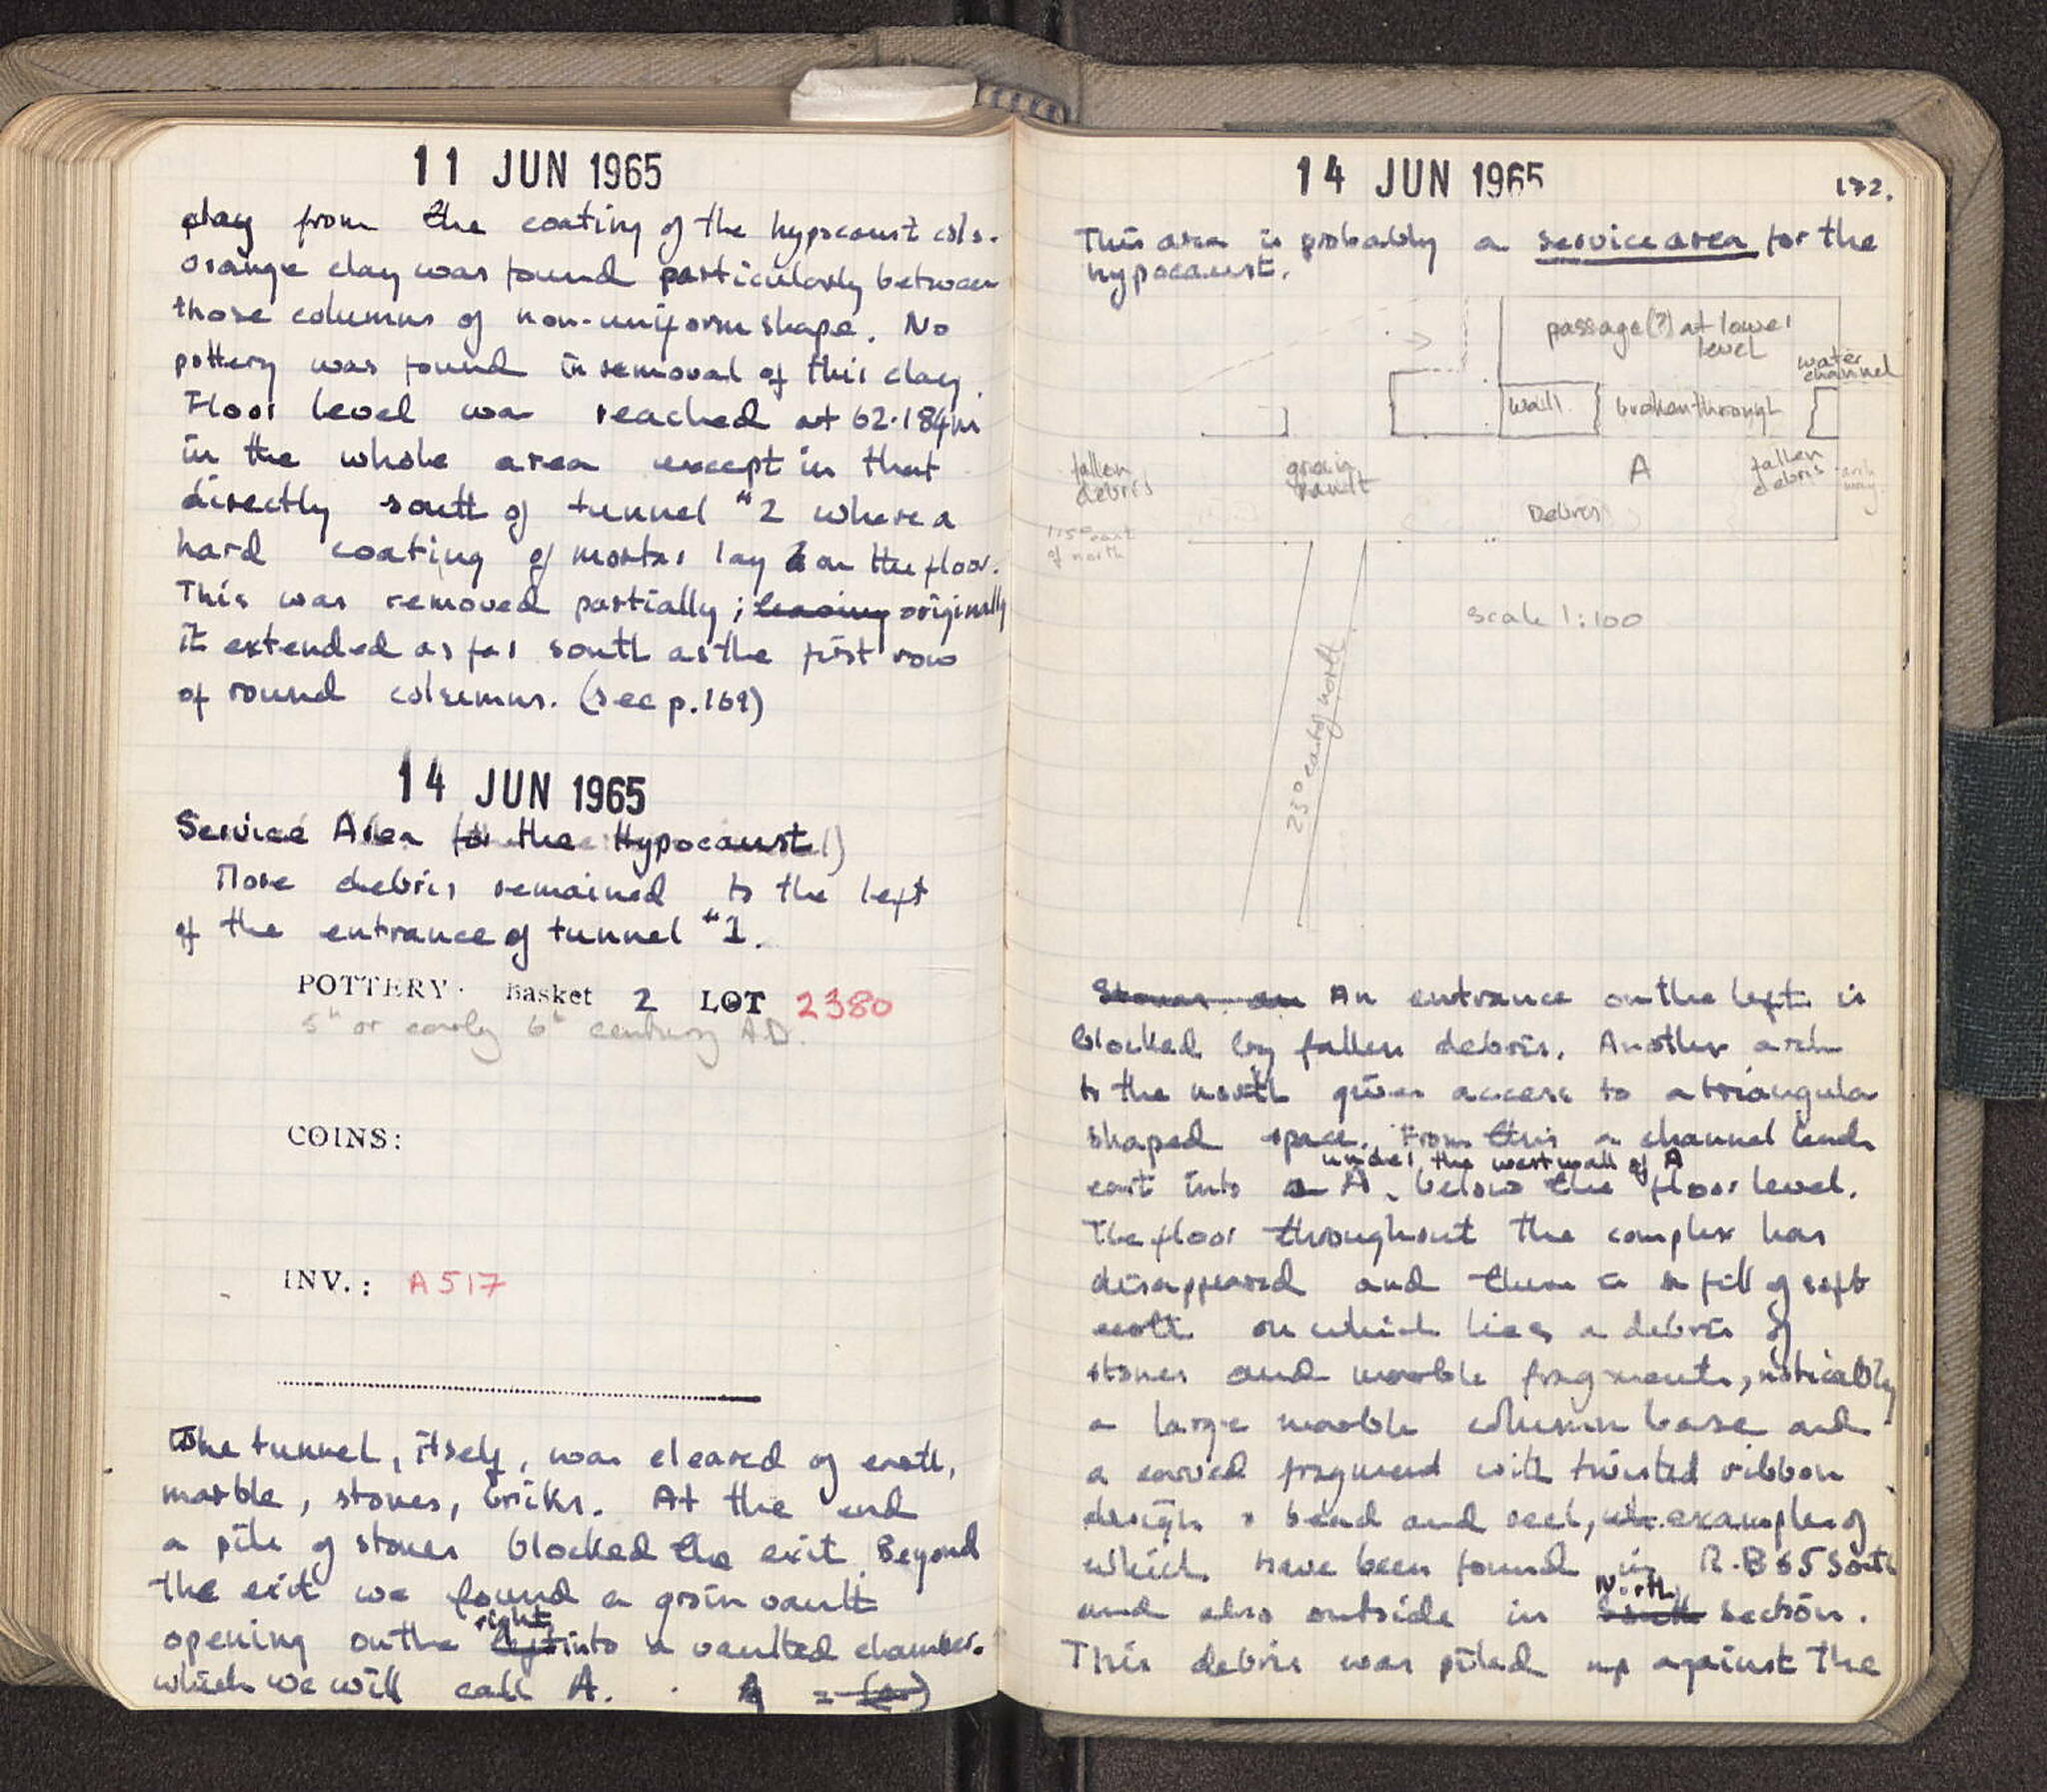 11 JUN 1965
clay from the coating of the hypocaust cols.
orange clay was found particularly between
those columns of non-uniform shape. No
pottery was found in removal of this clay.
Floor level was reached at 62.184m
in the whole area except in that
directly south of tunnel #2 where a
hard coating of mortar lay on the floor.
This was removed partially; leaving originally
it extended as far south as the first row
of round columns. (see p.169)
14 JUN 1965
Service Area (for the Hypocaust)
More debris remained to the left
of the entrance of tunnel #1.
POTTERY: Basket 2 LOT 2380
5th or early 6th century A.D.
COINS:
INV.: A 517
The tunnel, itself, was cleared of earth,
marble, stones, briks. At the end
a pile of stones blocked the exit. Beyond
the exit we found a groin vault
right
opening on the left into a vaulted chamber.
which we will call A.
14 JUN 1965
172.
This area is probably a service area for the
hypocaust.
passage(?) at lower
level
water
channel
wall
broken through
fallen
debris
groin
vault
A
fallen
debris
arch
way
Debris
115° east
of north
scale 1:100
25° east of north
Stones on An entrance on the left is
blocked by fallen debris. Another arch
to the north gives access to a triangular
shaped space. From this a channel leads
under the west wall of A
east into A, below the floor level.
The floor throughout the complex has
disappeared and there is a fill of soft
earth on which lies a debris of
stones and marble fragments, noticably
a large marble column base and
a carved fragment with twisted ribbon
design & bead and reel, examples of
which have been found in R.B 65 South
North
and also outside in South section.
This debris was piled up against the